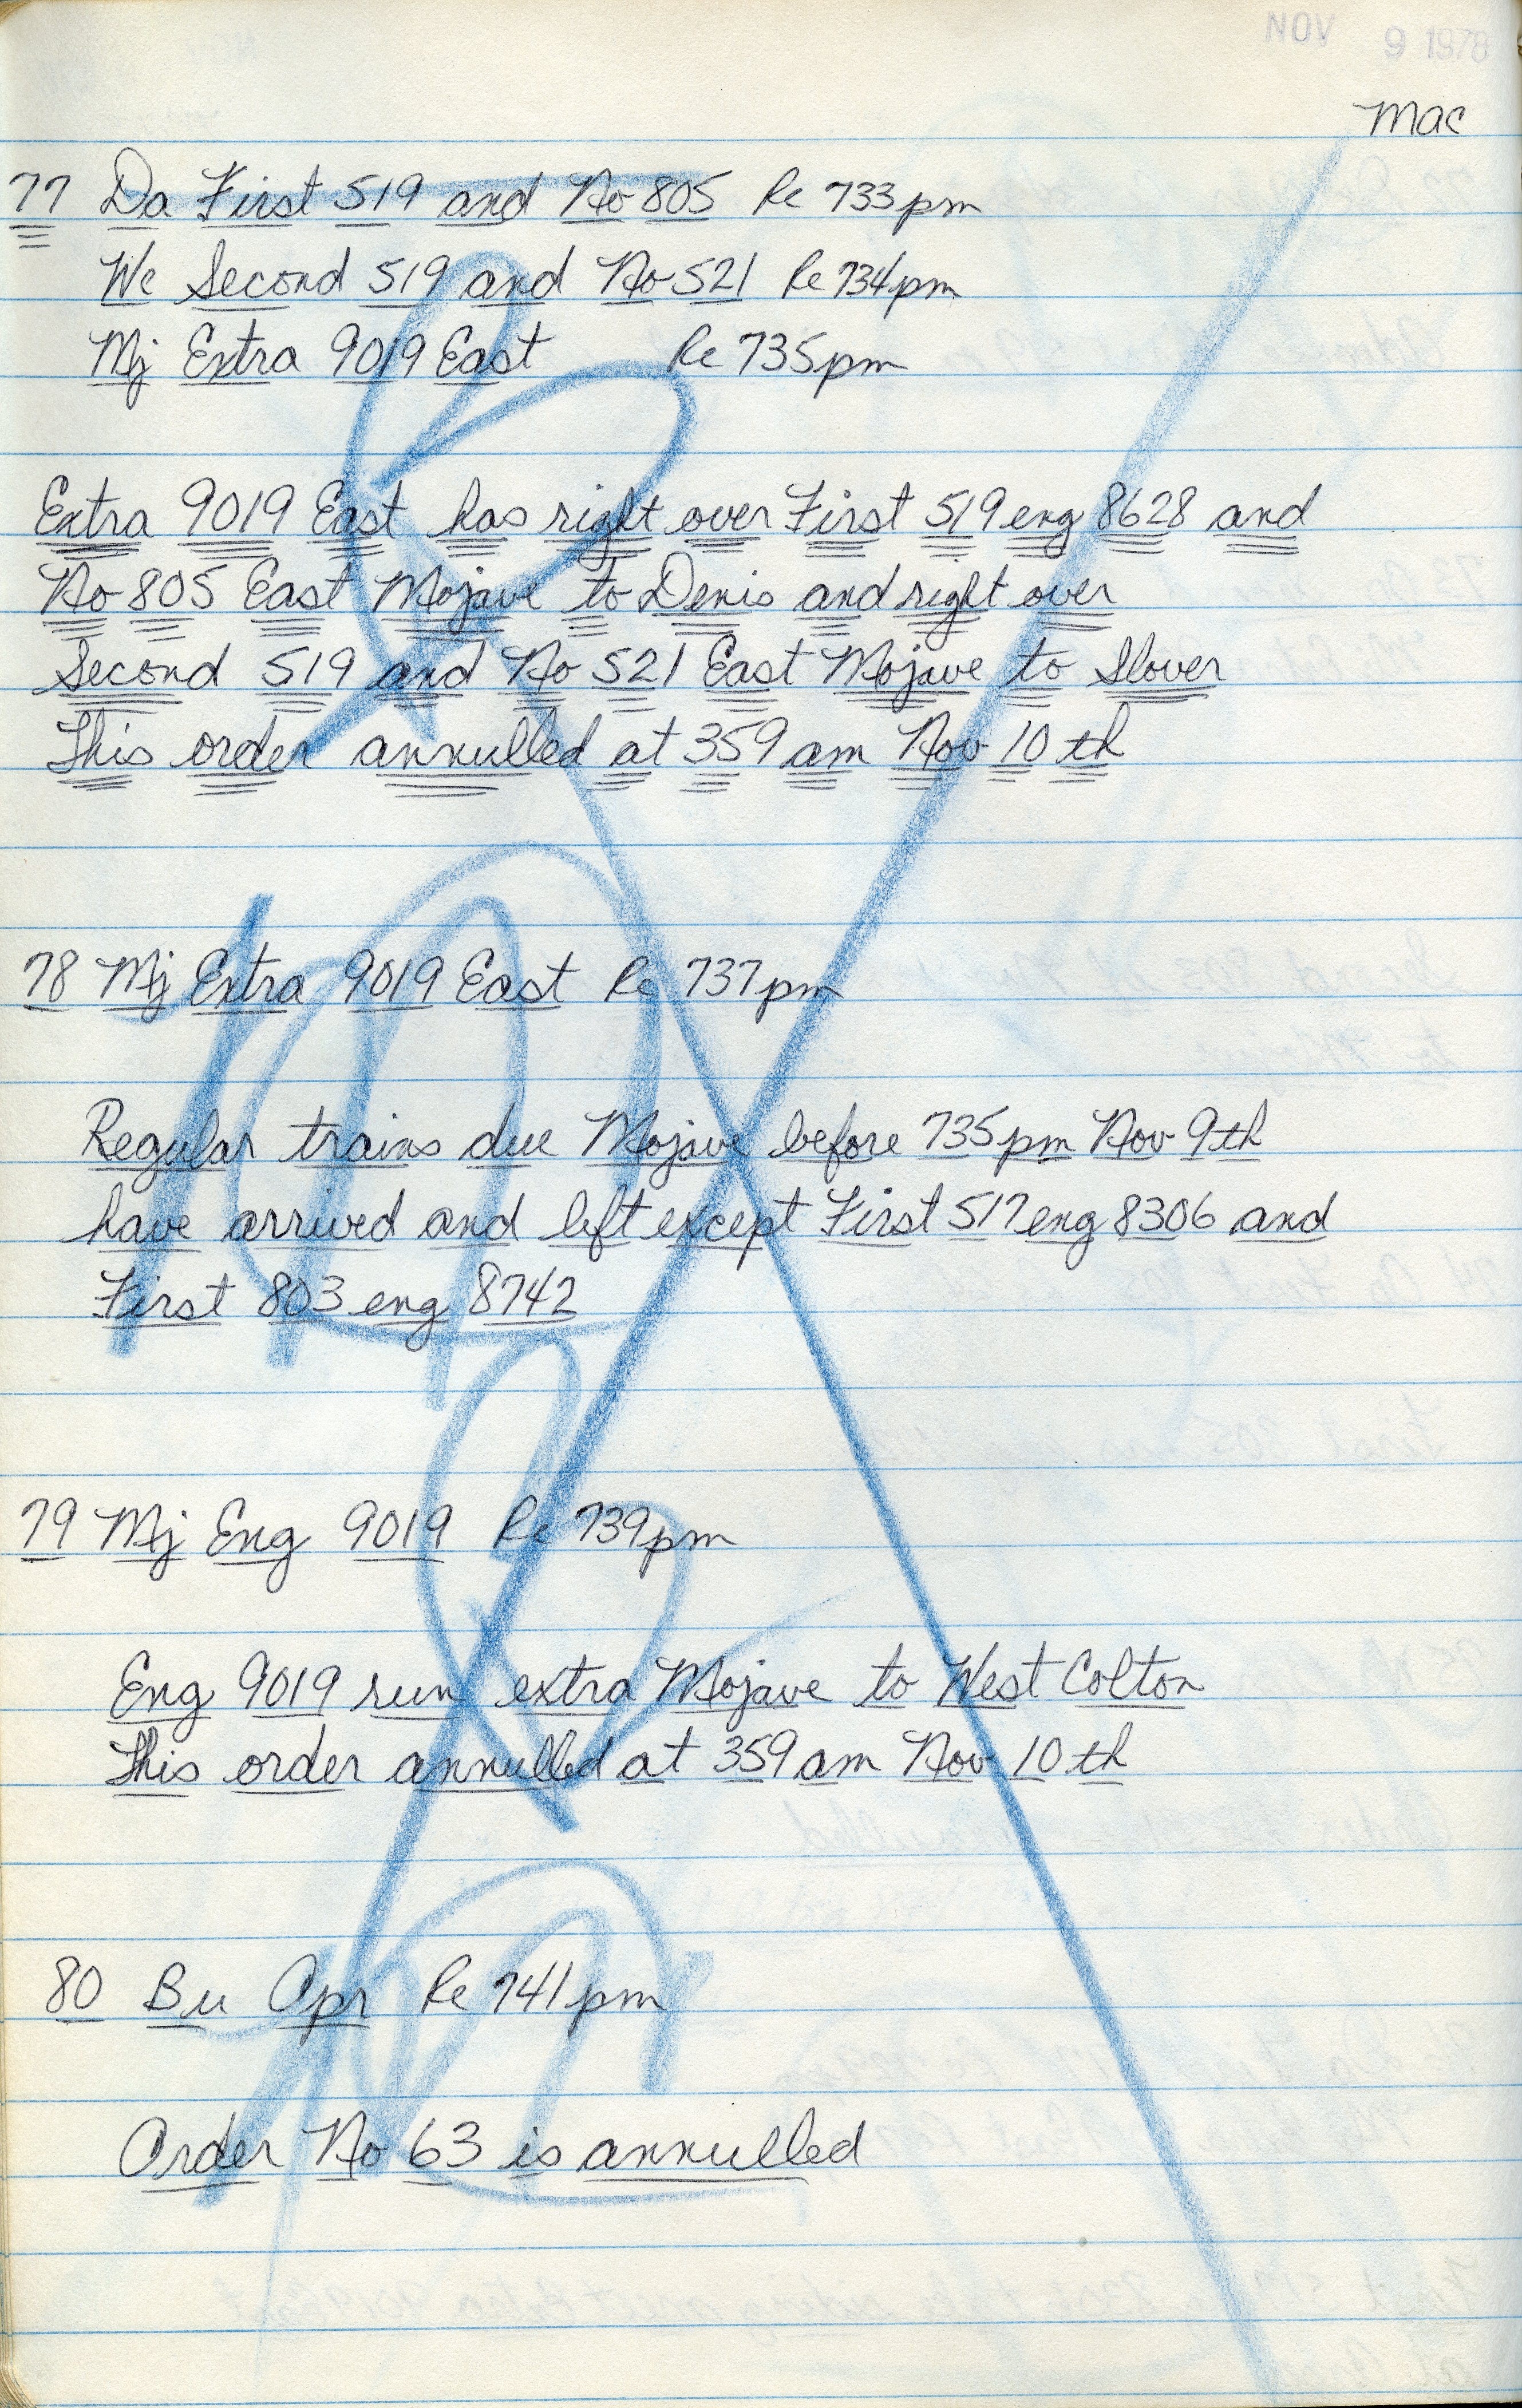 NOV 9 1978
Mac
77 Da First 519 and No 805 Re 733pm
We Second 519 and No 521 Re 734pm
Mj Extra 9019 East Re 735pm
Extra 9019 East has right over First 519 eng 8628 and
No 805 East Mojave to Denis and right over
Second 519 and No 521 East Mojave to Slover
This order annulled at 359 am Nov 10 th
78 Mj Extra 9019 East Re 737pm
Regular trains due Mojave before 735pm Nov 9th
have arrived and left except First 517 eng 8306 and
First 803 eng 8742
79 Mj Eng 9019 Re 739pm
Eng 9019 run extra Mojave to West Colton
This order annulled at 359 am Nov 10 th
80 Bu Opr Re 741pm
Order No 63 is annulled